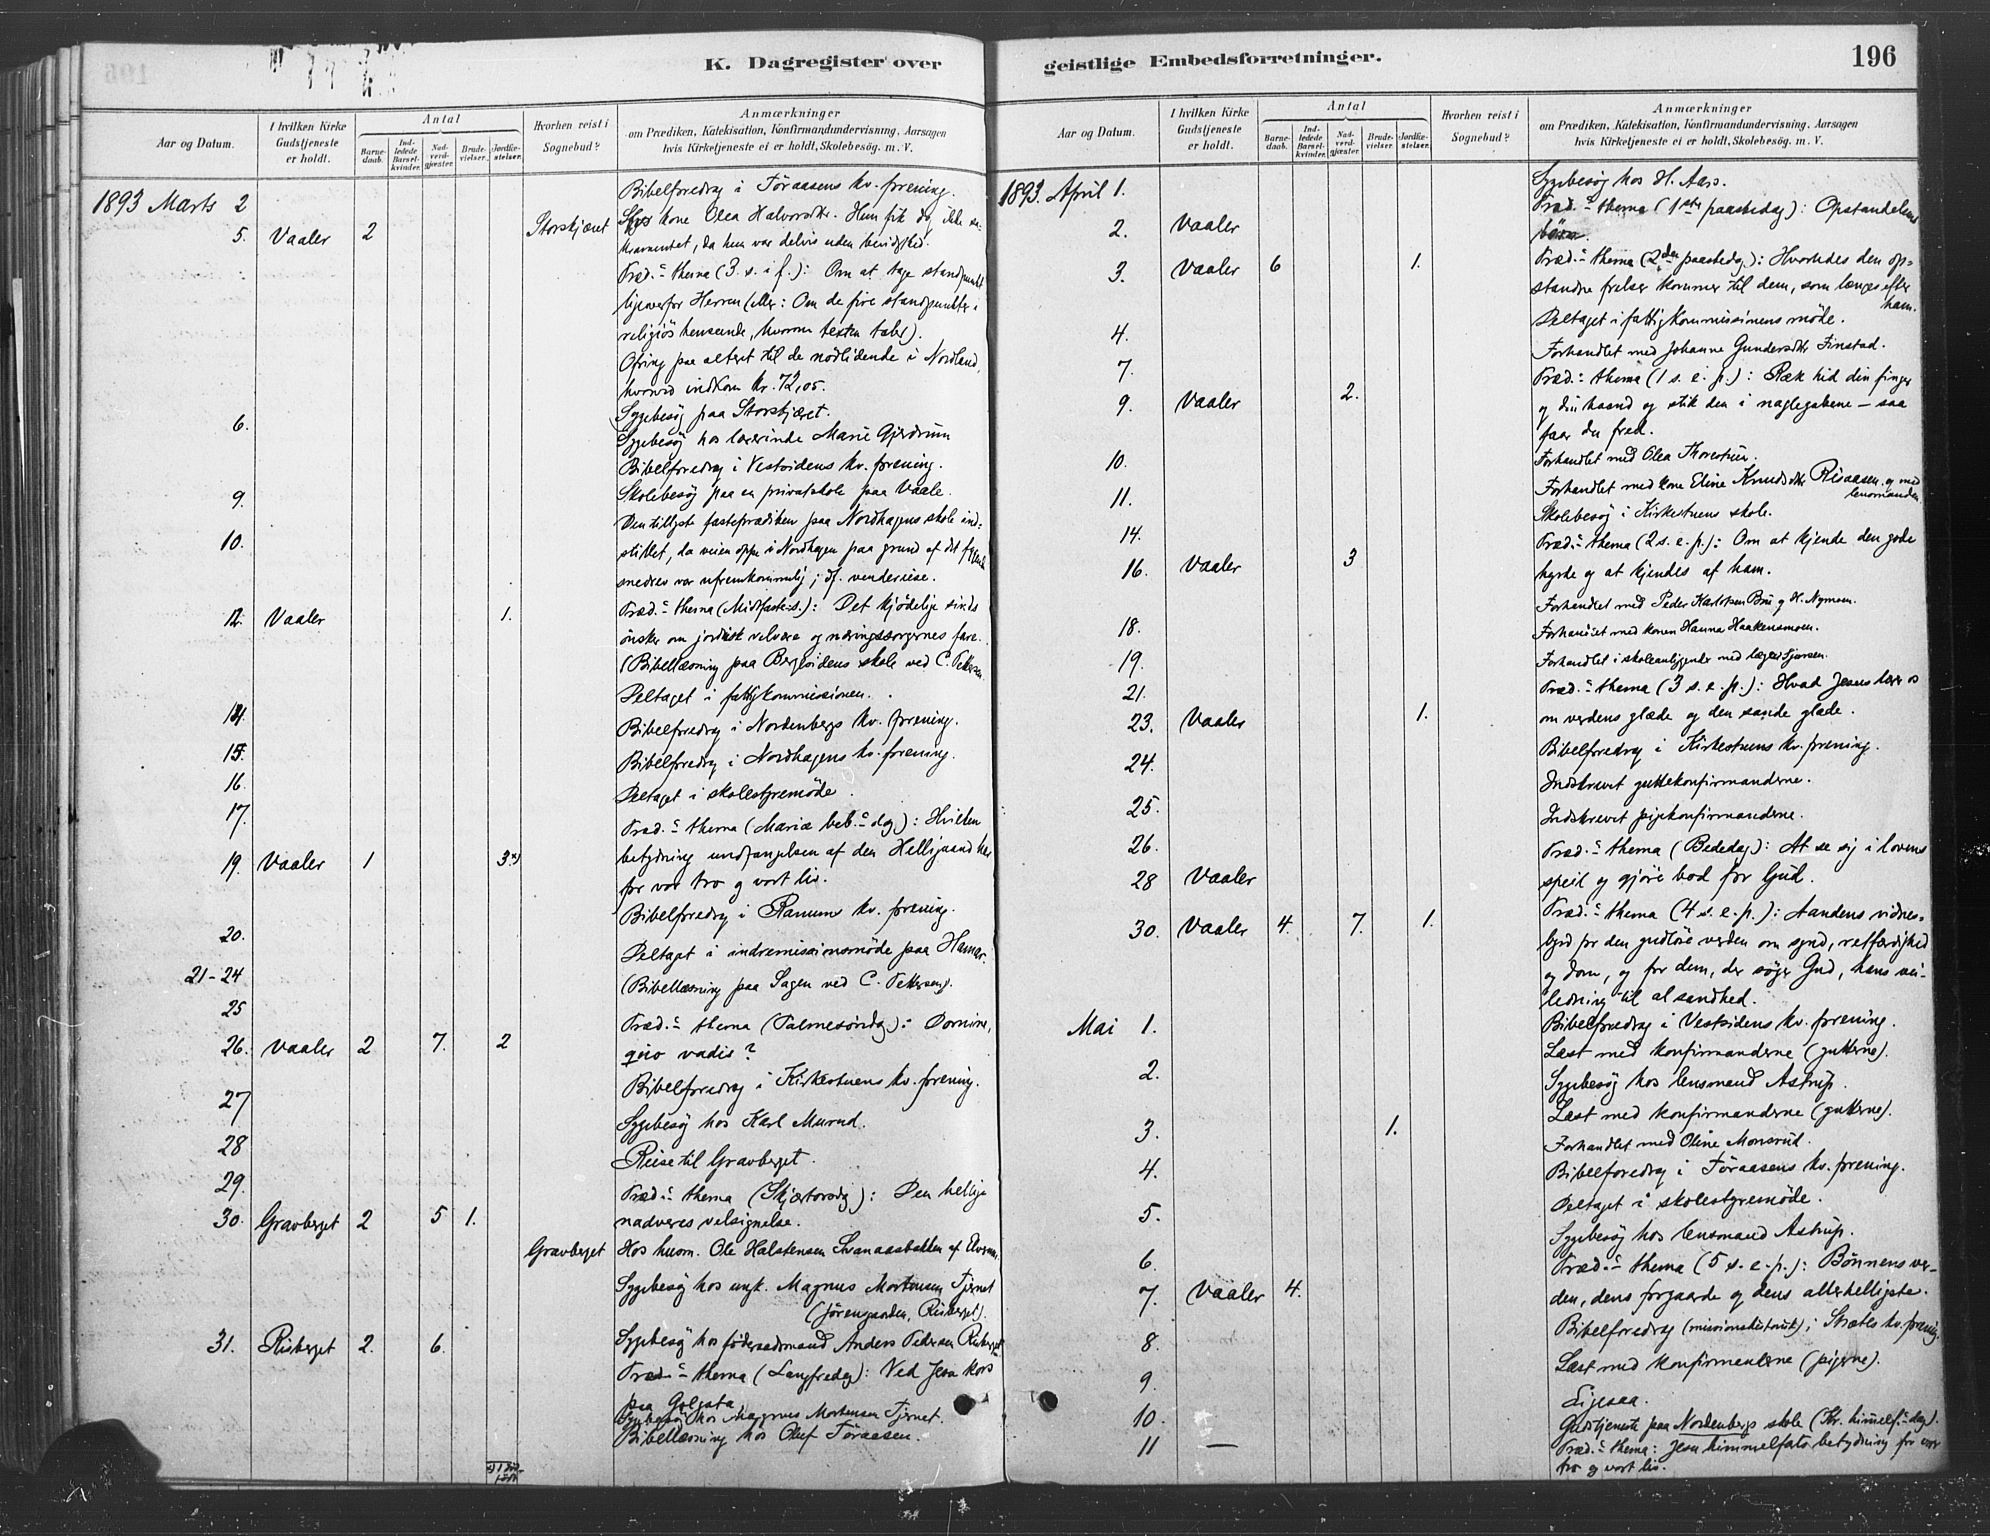 K. Dagregister over
Aar og Datum.
I hvilken Kirke Gudstjeneste er holdt.
Antal
Barnedaab.
Indledede Barselkvinder.
Nadverdgjæster.
Brudevielser.
Jordfæstelser.
Hvorhen reist i Sognebud?
Anmærkninger
om Prædiken, Katekisation, Konfirmandundervisning, Aarsagen
hvis Kirketjeneste ei er holdt, Skolebesøg. m. V.
1893 Marts 2
Bibelforedrag i Føraasens kv. forening.
5. Vaaler 2 Storskjæret
kone Olea Halvorsdtr. Hun fik dog ikke sa-
kramentet, da hun var delvis uden bevidsthed.
Præd.s thema (3. s. i f.): Om at tage standpunkt
ligeoverfor Herren (eller: Om de fire standpunkter i
religiøs henseende, hvorom texten taler).
Ofring paa alteret til de nødlidende i Nordland,
hvorved indkom kr. 72,05.
Sygebesøg paa Storskjæret.
6.
Sygebesøg hos lærerinde Marie Gjerdrum
Bibelforedrag i Vestsidens kv. forening.
9.
Skolebesøg paa en privatskole paa Vaale.
10.
Den tillyste fasteprædiken paa Nordhagens skole ind-
stillet, da veien oppe i Nordhagen paa grund af det
snedrev var ufremkommelig; jf. vendereise.
12. Vaaler 1.
Præd.s thema (Midfastes.): Det kjødelige sinds
ønsker om jordisk velvære og næringssorgernes fare.
(Bibellæsning paa Bergsidens skole ved C. Pettersen.
Deltaget i fattigkommissionen.
14.
Bibelforedrag i Nordenbergs kv. forening.
15.
Bibelforedrag i Nordhagens kv. forening.
16.
Deltaget i skolestyremøde.
17.
Præd.s thema (Mariæ beb.s dag): Hvilken
19. Vaaler 1 3
betydning undfangelsen af den Helligaand har
for vor tro og vort liv.
Bibelforedrag i Ranum kv. forening.
20.
Deltaget i indremissionsmøde paa Hamar.
21-24
(Bibellæsning paa Sagen ved C. Pettersen).
25
Præd.s thema (Palmesøndag): Domine,
26. Vaaler 2 7. 2
quo vadis?
Bibelforedrag i Kirkestuens kv. forening.
27
Sygebesøg hos Karl Murud.
28
Reise til Gravberget.
29.
Præd.s thema (Skjærtorsdag): Den hellige
30. Gravberget 2 5 1.
nadveres velsignelse.
Gravberget Hos husm. Ole Halstensen Svanaasbakken af Elverum.
Sygebesøg hos ungk. Magnus Mortensen Tjernet
(Jørengaarden, Risberget).
31. Risberget 2. 6.
Sygebesøg hos føderaadsmand Anders Pedersen Risberget
Præd.s thema (Langfredag): Ved Jesu kors
paa Golgata.
Sygebesøg hos Magnus Mortensen Tjernet.
Bibellæsning hos Oluf Føraasen.
geistlige Embedsforretninger.
196
Aar og Datum.
I hvilken Kirke Gudstjeneste er holdt.
Antal
Barnedaab.
Indledede Barselkvinder.
Nadverdgjæster.
Brudevielser.
Jordfæstelser.
Hvorhen reist i Sognebud?
Anmærkninger
om Prædiken, Katekisation, Konfirmandundervisning, Aarsagen
hvis Kirketjeneste ei er holdt, Skolebesøg. m. V.
1893. April 1.
Sygebesøg hos H. Aas.
2. Vaaler
Præd.s thema (1ste paaskedag): Opstandelsens
3. Vaaler 6 1.
Præd.s thema (2den paaskedag): Hvorledes den op-
standne frelser kommer til dem, som længes efter
ham.
4.
Deltaget i fattigkommissionens møde.
7.
Forhandlet med Johanne Gundersdtr. Finstad.
9. Vaaler 2.
Præd.s thema (1 s. e. p.): Ræk hid din finger
og din haand og stik den i naglegabene – saa
faar du fred.
10.
Forhandlet med Olea
11.
Forhandlet med kone Eline Knudsdtr. Risaasen og med
lensmanden.
14.
Skolebesøg i Kirkestuens skole.
16. Vaaler 3
Præd.s thema (2 s. e. p.): Om at kjende den gode
hyrde og at kjendes af ham.
18.
Forhandlet med Peder Karlsen Bru og H. Nymoen.
19.
Forhandlet med konen Hanna Haakensmoen.
21.
Forhandlet i skoleanliggender med
23. Vaaler 1.
Præd.s thema (3 s. e. p.): Hvad Jesus lærer os
om verdens glæde og den sande glæde.
24.
Bibelforedrag i Kirkestuens kv. forening.
25.
Indskrevet guttekonfirmanderne.
26.
Indskrevet pigekonfirmanderne.
28 Vaaler
Præd.s thema (Bededag): At se sig i lovens
speil og gjøre bod for Gud.
30. Vaaler 4. 7. 1.
Præd.s thema (4 s. e. p.): Aandens vidnes-
byrd for den gudløse verden om synd, retfærdighed
og dom, og for dem, der søger Gud, hans vei-
ledning til al sandhed.
Mai 1.
Bibelforedrag i Vestsidens kv. forening.
Læst med konfirmanderne (gutterne).
2.
Sygebesøg hos lensmand Astrup.
Læst med konfirmanderne (gutterne).
3. 1.
Forhandlet med Oline Monsrud.
4.
Bibelforedrag i Føraasens kv. forening.
5.
Deltaget i skolestyremøde.
6.
Sygebesøg hos lensmand Astrup.
7. Vaaler 4.
Præd.s thema (5 s. e. p.): Bønnens ver-
den, dens forgaard og dens allerhelligste.
8.
Bibelforedrag i kv. forening.
9.
Læst med konfirmanterne (pigerne).
10.
Ligesaa.
11 —
Gudstjeneste paa Nordenbergs skole (Kr. himmelf.s dag).
Præd.s thema: Jesu himmelfarts betydning for vor
tro og vort liv.